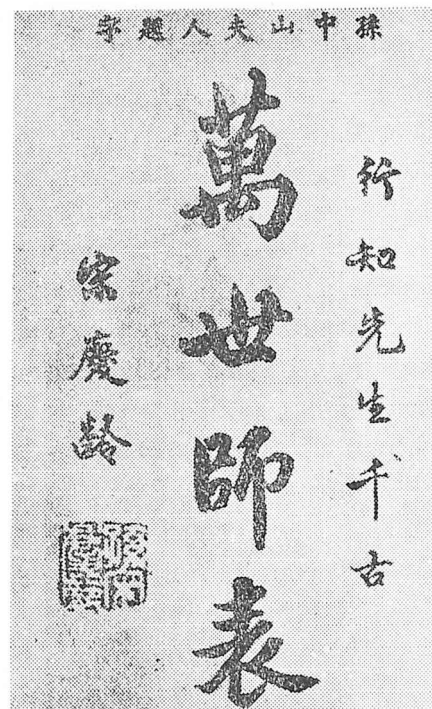 孫中山夫人題字
行知先生千古
萬世師表
宋慶齡